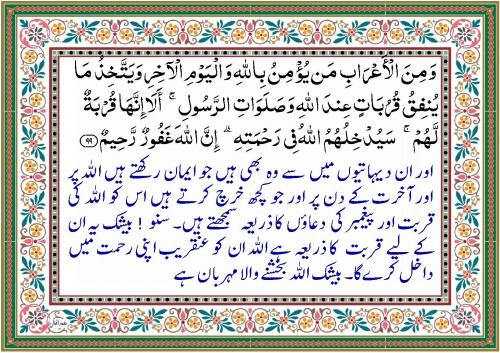 وَمِنَ الْأَعْرَابِ مَن يُؤْمِنُ بِاللهِ وَالْيَوْمِ الْآخِرِ وَيَتَّخِذُ مَا
يُنفِقُ قُرُبَاتٍ عِندَ اللهِ وَصَلَوَاتِ الرَّسُولِ ۚ أَلَا إِنَّهَا قُرْبَةٌ
لَّهُمْ ۚ سَيُدْخِلُهُمُ اللهُ فِي رَحْمَتِهِ ۗ إِنَّ اللهَ غَفُورٌ رَّحِيمٌ ﴿۹۹﴾
اور ان دیہاتیوں میں سے وہ بھی ہیں جو ایمان رکھتے ہیں اللہ پر
اور آخرت کے دن پر اور جو کچھ خرچ کرتے ہیں اس کو اللہ کی
قربت اور پیغمبر کی دعاؤں کا ذریعہ سمجھتے ہیں۔ سنو ! بیشک یہ ان
کے لیے قربت کا ذریعہ ہے اللہ ان کو عنقریب اپنی رحمت میں
داخل کرے گا۔ بیشک اللہ بخشنے والا مہربان ہے